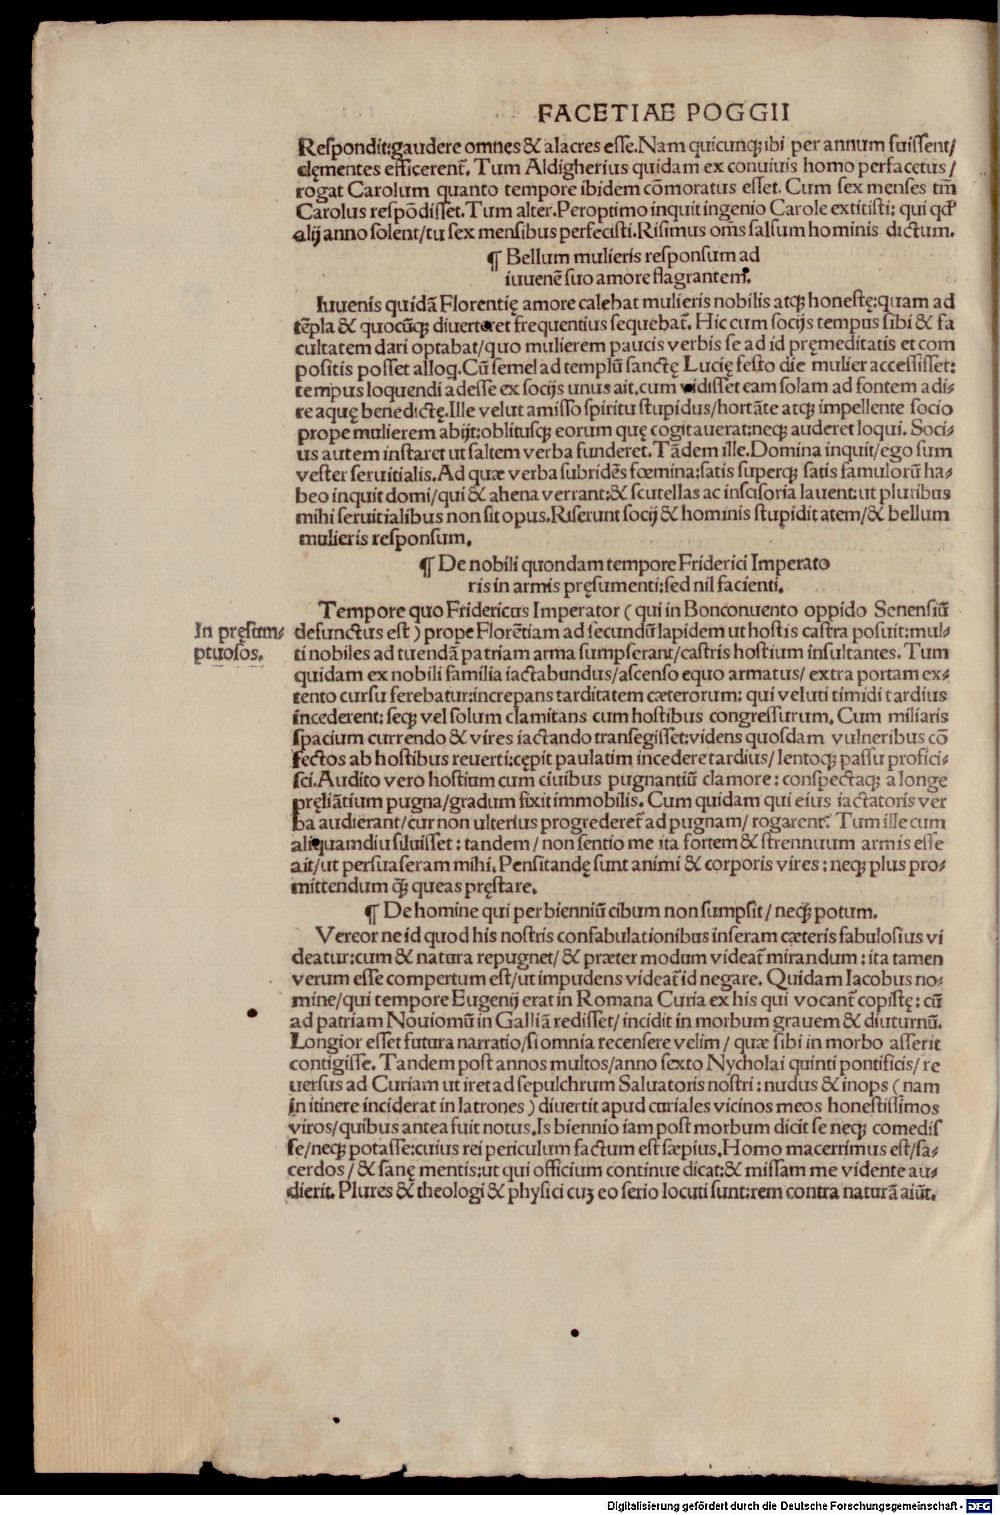 FACETIAE POGGII
Respondit:gaudere omnes & alacres esse.Nam quicunq; ibi per annum fuissent/
clęmentes efficerent᷑. Tum Aldigherius quidam ex conuiuis homo perfacetus /
rogat Carolum quanto tempore ibidem cōmoratus esset. Cum sex menses tm̄
Carolus respōdisset.Tum alter.Peroptimo inquit ingenio Carole extitisti: qui qđ
alij anno solent/tu sex mensibus perfecisti.Risimus oms̄ salsum hominis dictum.
¶ Bellum mulieris responsum ad
iuuenē suo amore flagrantem.
Iuuenis quidā Florentię amore calebat mulieris nobilis atq; honestę:quam ad
tēpla & quocūq; diuerteret frequentius sequebat᷑. Hic cum socijs tempus sibi & fa
cultatem dari optabat/quo mulierem paucis verbis se ad id pręmeditatis et com
positis posset alloq.Cū semel ad templū sanctę Lucię festo die mulier accessisset:
tempus loquendi adesse ex socijs unus ait.cum vidisset eam solam ad fontem adi⸗
re aquę benedictę.Ille velut amisso spiritu stupidus/hortāte atq; impellente socio
prope mulierem abijt:oblitusq; eorum quę cogitauerat:neq; auderet loqui. Soci⸗
us autem instaret ut saltem verba funderet. Tādem ille.Domina inquit/ego sum
vester seruitialis.Ad quæ verba subridēs fœmina:satis superq; satis famulorū ha⸗
beo inquit domi/qui & ahena verrant:& scutellas ac inscisoria lauent:ut pluribus
mihi seruitialibus non sit opus.Riserunt socij & hominis stupiditatem/& bellum
mulieris responsum.
¶ De nobili quondam tempore Friderici Imperato
ris in armis pręsumenti:sed nil facienti.
Tempore quo Fridericus Imperator ( qui in Bonconuento oppido Senensiū
In pręsum⸗
ptuosos.
defunctus est ) prope Florētiam ad secundū lapidem ut hostis castra posuit:mul⸗
ti nobiles ad tuendā patriam arma sumpserant/castris hostium insultantes. Tum
quidam ex nobili familia iactabundus/ascenso equo armatus/ extra portam ex⸗
tento cursu ferebatur:increpans tarditatem cæterorum: qui veluti timidi tardius
incederent: seq; vel solum clamitans cum hostibus congressurum. Cum miliaris
spacium currendo & vires iactando transegisset:videns quosdam vulneribus cō
fectos ab hostibus reuerti:cępit paulatim incedere tardius/ lentoq; passu profici⸗
sci.Audito vero hostium cum ciuibus pugnantiū clamore : conspectaq; a longe
pręliātium pugna/gradum fixit immobilis. Cum quidam qui eius iactatoris ver
ba audierant/cur non ulterius progrederet᷑ ad pugnam/ rogarent: Tum ille cum
aliquamdiu siluisset : tandem / non sentio me ita fortem & strennuum armis esse
ait/ut persuaseram mihi. Pensitandę sunt animi & corporis vires : neq; plus pro⸗
mittendum q̄; queas pręstare.
¶ De homine qui per bienniū cibum non sumpsit / neq; potum.
Vereor ne id quod his nostris confabulationibus inseram cæteris fabulosius vi
deatur:cum & natura repugnet/ & præter modum videat᷑ mirandum : ita tamen
verum esse compertum est/ut impudens videat᷑ id negare. Quidam Iacobus no⸗
mine/qui tempore Eugenij erat in Romana Curia ex his qui vocant᷑ copistę: cū
ad patriam Nouiomū in Galliā redisset/ incidit in morbum grauem & diuturnū.
Longior esset futura narratio/si omnia recensere velim / quæ sibi in morbo asserit
contigisse. Tandem post annos multos/anno sexto Nycholai quinti pontificis/ re
uersus ad Curiam ut iret ad sepulchrum Saluatoris nostri : nudus & inops ( nam
in itinere inciderat in latrones ) diuertit apud curiales vicinos meos honestissimos
viros/quibus antea fuit notus.Is biennio iam post morbum dicit se neq; comedis
se/neq; potasse:cuius rei periculum factum est sæpius.Homo macerrimus est/sa⸗
cerdos / & sanę mentis:ut qui officium continue dicat:& missam me vidente au⸗
dierit. Plures & theologi & physici cuȝ eo serio locuti sunt:rem contra naturā aiūt.
Digitalisierung gefördert durch die Deutsche Forschungsgemeinschaft - DFG